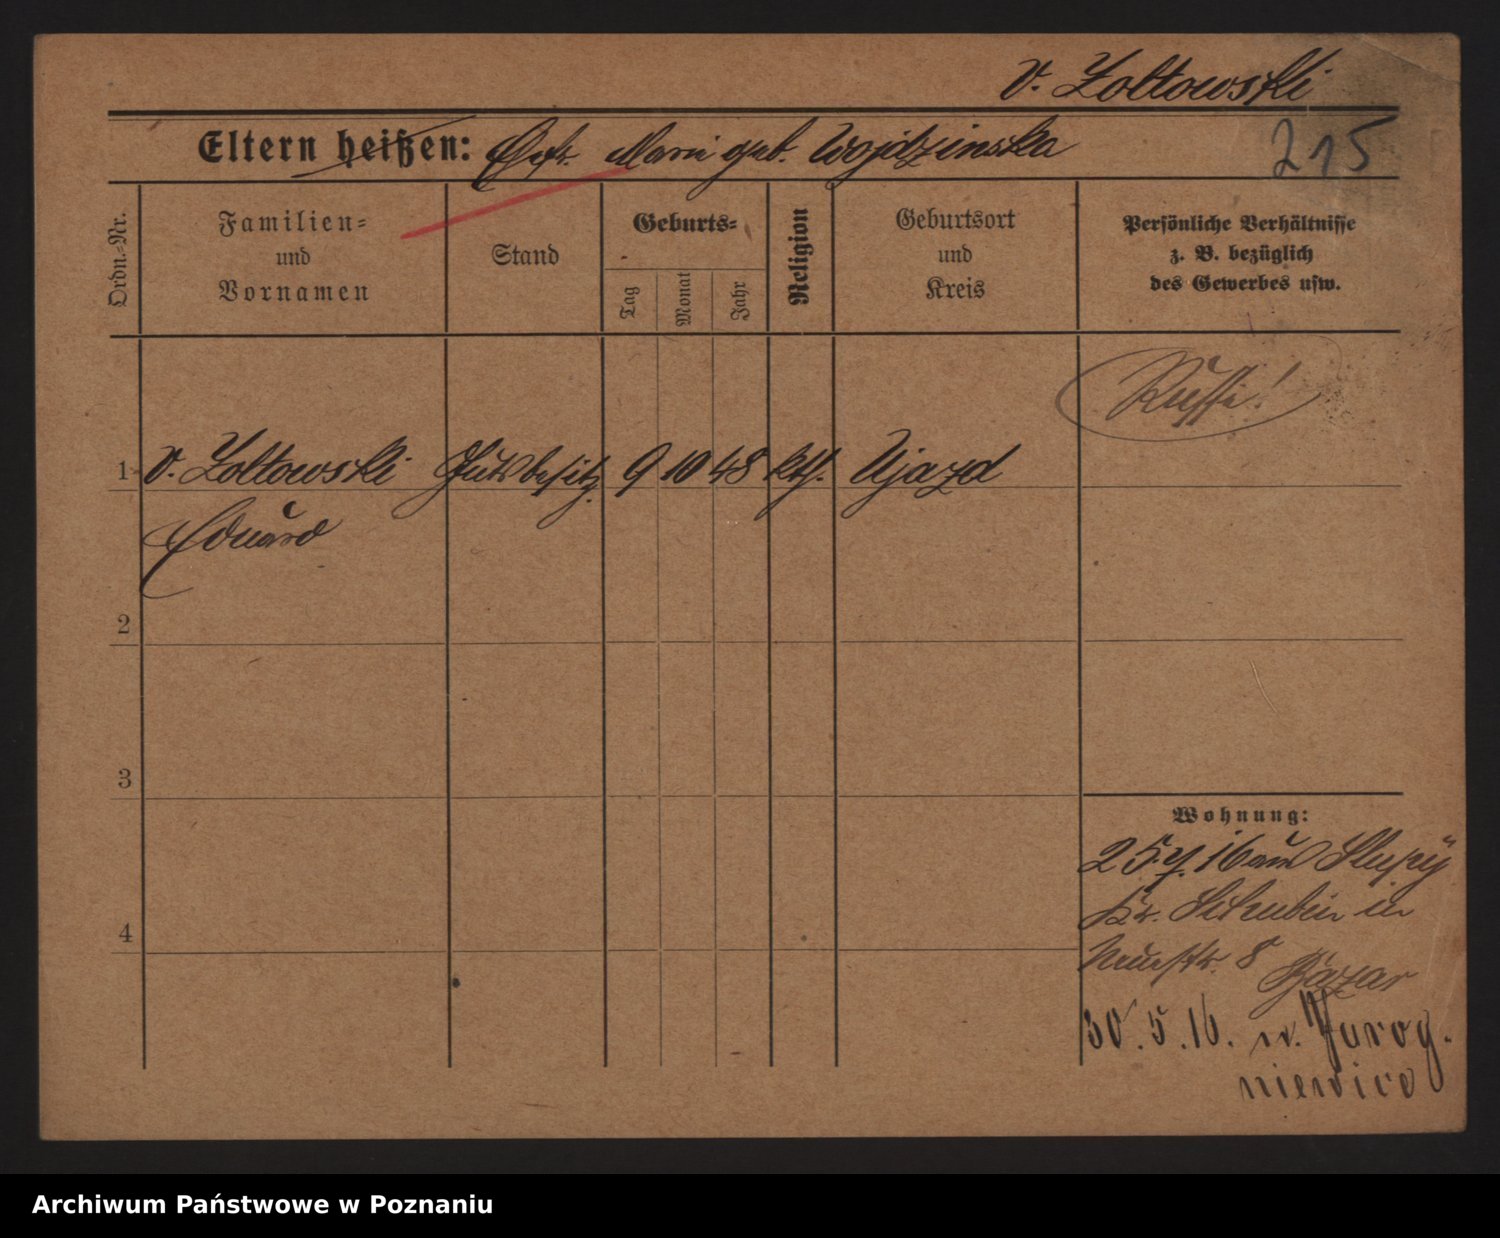 v. Zoltowski
215
Eltern heißen: Marie geb. Wojdzinska
Ordn.-Nr.
Familien-
und
Vornamen
Stand
Geburts-
Tag
Monat
Jahr
Religion
Geburtsort
und
Kreis
Persönliche Verhältnisse
z. B. bezüglich
des Gewerbes usw.
Russe!
1 v. Zoltowski Gutsbesitz. 9 10 48 kth. Ujazd
Eduard
2
3
4
Wohnung:
16 aus Slupy
Kr. Schubin in
Neuestr. 8 Bazar
30.5.16. n. Jarog-
niewice
Archiwum Państwowe w Poznaniu